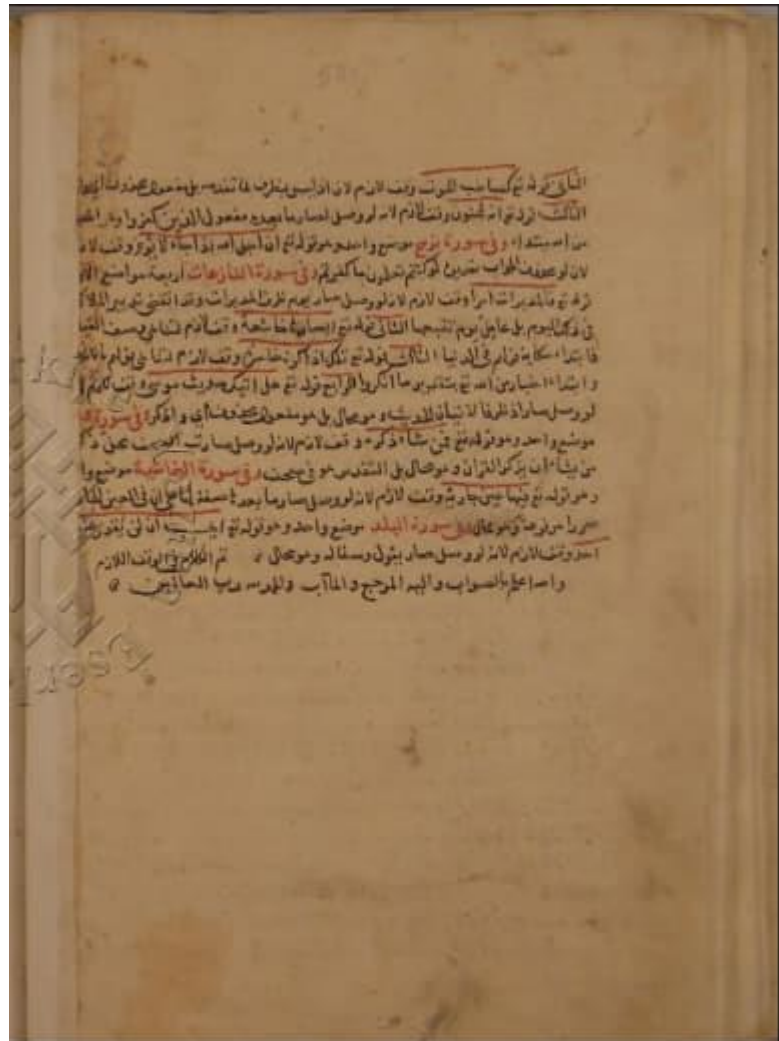 الثاني قوله تع كصاحب الحوت وقف لازم لان اذ ليس بظرف لما تقدمه بل مفعول محذوف
الثالث قوله تع انه لمجنون وقف لازم لانه لو وصل لصار ما بعده مفعول الذين كفروا
من الله ابتداء وفي سورة نوح موضع واحد وهو قوله تع ان اجل الله اذا جاء لا يؤخر وقف لازم
لان لو محذوف الجواب تقديره لو كنتم تعلمون ما كفرتم وفي سورة النازعات اربعة مواضع
قوله تع فالمدبرات امرا وقف لازم لانه لو وصل صار يوم ظرف المدبرات وقد انقضى تدبير
في ذلك اليوم بل عامل يوم تتبعها الثاني قوله تع ابصارها خاشعة وقف لازم
فابتداء حكاية قولهم في الدنيا الثالث قوله تع تلك اذا كرة خاسرة وقف لازم
وابتداء اخبار من الله تع بتقدير ما انكروا الرابع قوله تع هل اتيك حديث موسى وقف لازم
لو وصل صار اذ ظرفا لاتيان الحديث وهو محال بل هو مفعول محذوف اي واذكر وفي سورة
موضع واحد وهو قوله تع فمن شاء ذكره وقف لازم لانه لو وصل صارت
من شاء ان يذكر القران وهو محال بل التقدير هو في صحف وفي سورة الغاشية موضع
وهو قوله تع فيها عين جارية وقف لازم لانه لو وصل صار ما بعدها صفة لها على ان في العين
سررا مرفوعة وهو محال وفي سورة البلد موضع واحد وهو قوله تع ايحسب ان لن يقدر عليه
احد وقف لازم لانه لو وصل صار يقول وصفا له وهو محال تم الكلام في الوقف اللازم
والله اعلم بالصواب واليه المرجع والمآب والحمد لله رب العالمين